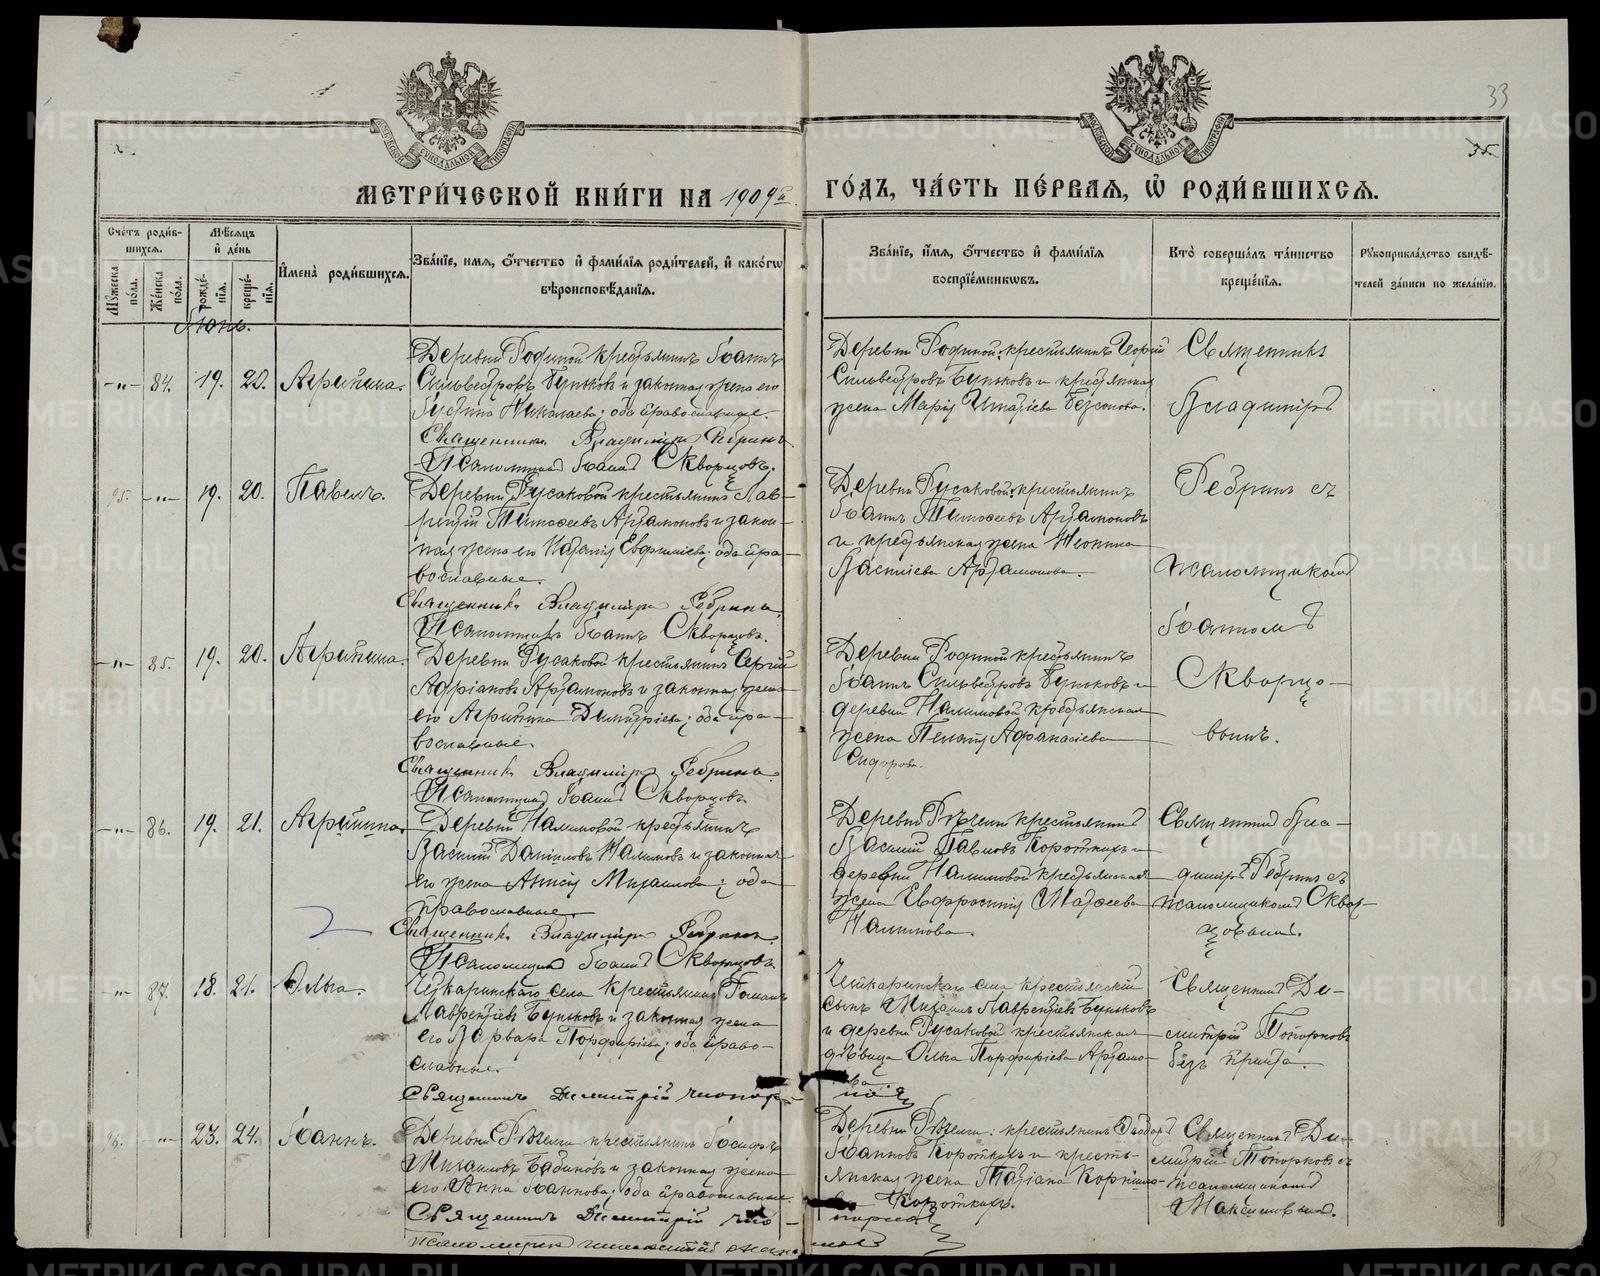 33
35.
МЕТРИ́ЧЕСКОЙ КНИ́ГИ НА 1909й
ГО́ДЪ, ЧА́СТЬ ПЕ́РВАѦ, Ѡ҆ РОДИ́ВШИХСѦ.
Сче́тъ роди́в-
шихсѧ.
Мꙋ́жеска по́ла.
Же́нска по́ла.
Мѣ́сѧцъ и҆ де́нь
рожде́-
нїѧ.
креще́-
нїѧ.
И҆мена̀ роди́вшихсѧ.
Зва́нїе, и́мѧ, ѻ҆́тчество и҆ фами́лїѧ роди́телей, и҆ како́гѡ
вѣроисповѣ́данїѧ.
Зва́нїе, и҆́мѧ, ѻ҆́тчество и҆ фами́лїѧ
воспрїе́мникѡвъ.
Кто̀ соверша́лъ та́инство
креще́нїѧ.
Рꙋкоприкла́дство свидѣ́-
телей за́писи по жела́нїю.
Іюнь.
-"- 84. 19. 20. Агрипина.
Деревни Родиной крестьянинъ Іоаннъ
Сильвестровъ Буньковъ и законная жена его
Іустина Николаева; оба православные.
Священникъ Владиміръ Ребринъ
Псаломщикъ Іоаннъ Скворцовъ.
Деревни Родиной крестьянинъ Георгій
Сильвестровъ Буньковъ и крестьянская
жена Марія Игнатіева Безсонова.
Священникъ
Владиміръ
Ребринъ съ
псаломщикомъ
Іоанномъ
Скворцо-
вымъ.
95. -"- 19. 20. Павелъ.
Деревни Русаковой крестьянинъ Лав-
рентій Тимоѳеевъ Артамоновъ и закон-
ная жена его Наталія Евфиміева; оба пра-
вославные.
Священникъ Владиміръ Ребринъ
Псаломщикъ Іоаннъ Скворцовъ.
Деревни Русаковой крестьянинъ
Іоаннъ Тимоѳеевъ Артамоновъ
и крестьянская жена Неонила
Василіева Артамонова.
-"- 85. 19. 20. Агрипина.
Деревни Русаковой крестьянинъ Сергій
Адріановъ Артамоновъ и законная жена
его Агрипина Димитріева; оба пра-
вославные.
Священникъ Владиміръ Ребринъ
Псаломщикъ Іоаннъ Скворцовъ
Деревни Родиной крестьянинъ
Іоаннъ Сильвестровъ Буньковъ и
деревни Налимовой крестьянская
жена Пелагія Афанасіева
Сидорова.
-"- 86. 19. 21. Агрипина.
Деревни Налимовой крестьянинъ
Василій Даніиловъ Налимовъ и законная
его жена Анисія Михаилова; оба
православные.
Священникъ Владиміръ Ребринъ
Псаломщикъ Іоаннъ Скворцовъ
Деревни Рѣчкиной крестьянинъ
Василій Павловъ Коротких и
деревни Налимовой крестьянская
жена Евфросинія Матѳеева
Налимова.
Священникъ Вла-
диміръ Ребринъ съ
псаломщикомъ Сквор-
цовымъ.
-"- 87. 18. 21. Ольга.
Чуткаринскаго села крестьянинъ Романъ
Лаврентіевъ Буньковъ и законная жена
его Варвара Порфиріева; оба право-
славные.
Священникъ Димитрій Топор-
ковъ
села крестьянскій
сынъ Михаилъ Лаврентіевъ Буньковъ
и деревни Русаковой крестьянская
дѣвица Ольга Порфиріева Артамо-
нова.
Священникъ Ди-
митрій Топорковъ
безъ причта.
96. -"- 23. 24. Іоаннъ.
крестьянинъ Іосифъ
Михаиловъ Бабиновъ и законная жена
его Анна Іоаннова; оба православные.
Священникъ Димитрій
крестьянинъ Ѳеодоръ
Іоанновъ Коротких и кресть-
янская жена Татіана Корнило-
ва Коротких.
Священникъ Ди-
митрій Топорковъ съ
псаломщикомъ
Максимовымъ.